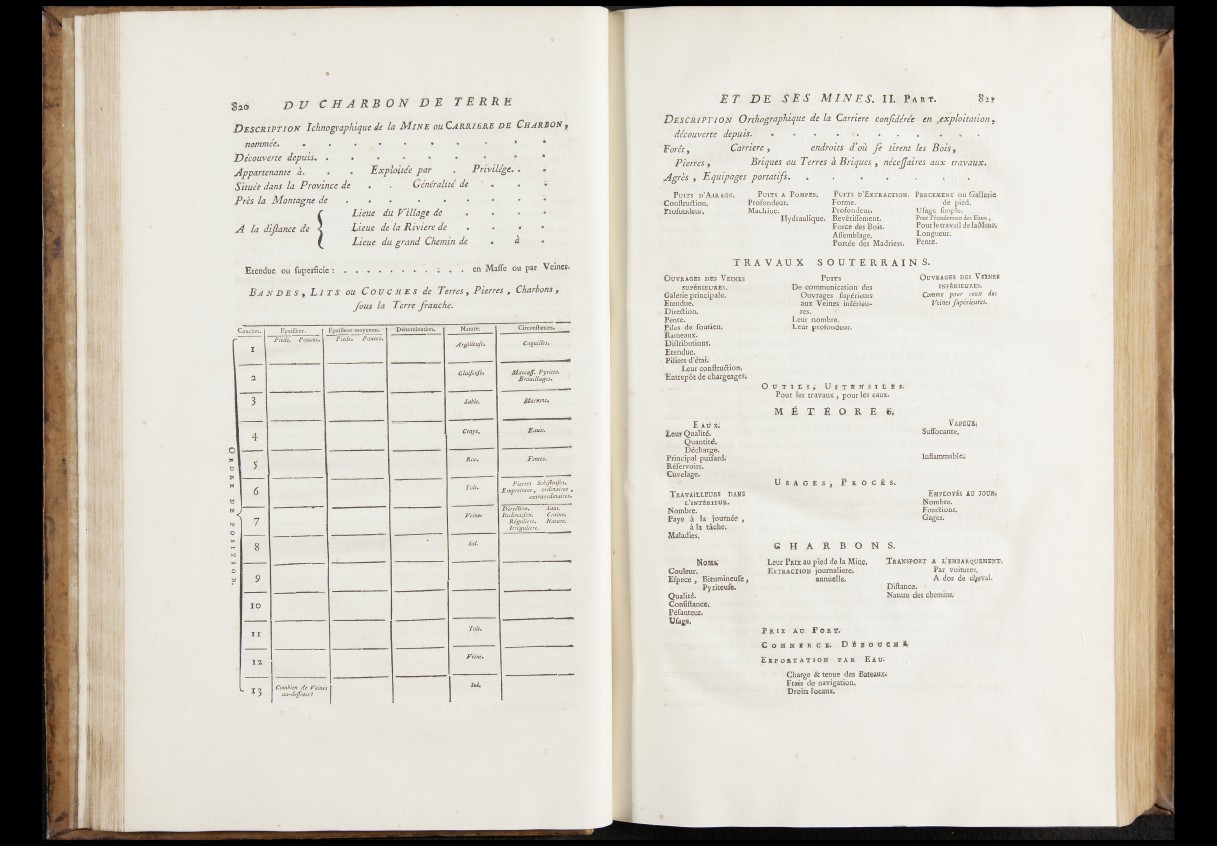 820 DU CHARBON DE TERRE
DESCRIPTION Ichnographique de la MINE ou CARRIERE DE CHARBON,
nommée. . . . . . . . . . .
Découverte depuis. . . . . . . . . .
Appartenante à. . . Exploitée par . Privilége. . .
Située dans la Province de . . Généralité de . . .
Près la Montagne de . . . . . . . .
A la distance de { Lieue du Village de . . . .
Lieue de la Riviere de . . . .
Lieue du grand Chemin de . à .
Etendue ou superficie : . . . . . . . . ; . . en Masse ou par Veines.
BANDES, LITS ou COUCHES de Terres, Pierres, Charbons,
sous la Terre franche.
Couches. Epaisseur. Epaisseur moyenne. Dénomination. Nature. Circonstances.
Pieds. Pouces. Pieds. Pouces.
ORDRE DE POSITION.
1 Argilleuse. Coquilles.
2 Glaiseuse. Marcass. Pyrites. Brouillages.
3 Sable. Marrons.
4 Craye. Eaux.
5 Roc. Fentes.
6 Toit. Pierres Schisteuses. Empreintes, ordinaires, extraordinaires.
7 Veine. Direction. Saut. Inclinaison. Crains. Réguliere. Nature. Irréguliere.
8 Sol.
9
10
11 Toit.
12 Veine.
13 Combien de Veines au-dessous? Sol.
ET DE SES MINES. II. PART. 821
DESCRIPTION Orthographique de la Carriere considérée en exploitation,
découverte depuis. . . . . . . . . . .
Forêt, Carriere, endroits d'où se tirent les Bois,
Pierres, Briques ou Terres à Briques, nécessaires aux travaux.
Agrès, Equipages portatifs. . . . . . . .
PUITS D'AIRAGE. PUITS A POMPES. PUITS D'EXTRACTION. PERCEMENT ou Gallerie
Construction. Profondeur. Forme. de pied.
Profondeur. Machine. Profondeur. Usage simple.
Hydraulique. Revêtissement. Pour l'écoulement des Eaux,
Force des Bois. Pour le travail de la Mine.
Assemblage. Longueur.
Portée des Madriers. Pente.
TRAVAUX SOUTERRAINS.
OUVRAGES DES VEINES PUITS OUVRAGES DES VEINES
SUPÉRIEURES. De communication des INFÉRIEURES.
Galerie principale. Ouvrages supérieurs Comme pour ceux des
Etendue. aux Veines inférieu- Veines supérieures.
Direction. res.
Pente. Leur nombre.
Piles de soutien. Leur profondeur.
Rameaux.
Distributions.
Etendue.
Piliers d'étai.
Leur construction.
Entrepôt de chargeages.
OUTILS, USTENSILES.
Pour les travaux, pour les eaux.
MÉTÉORES.
EAUX. VAPEUR.
Leur Qualité. Suffocante.
Quantité.
Décharge.
Principal puisard. Inflammable.
Réservoirs.
Cuvelage.
USAGES, PROCÈS.
TRAVAILLEURS DANS EMPLOYÉS AU JOUR.
L'INTÉRIEUR. Nombre.
Nombre. Fonctions.
Paye à la journée, Gages.
à la tâche.
Maladies.
CHARBONS.
NOMS. Leur PRIX au pied de la Mine. TRANSPORT A L'EMBARQUEMENT.
Couleur. EXTRACTION journaliere. Par voitures.
Espece, Bitumineuse, annuelle. A dos de cheval.
Pyriteuse. Distance.
Qualité. Nature des chemins.
Consistance.
Pésanteur.
Usage.
PRIX AU PORT.
COMMERCE. DÉBOUCHÉ.
EXPORTATION PAR EAU.
Charge & tenue des Bateaux.
Frais de navigation.
Droits locaux.